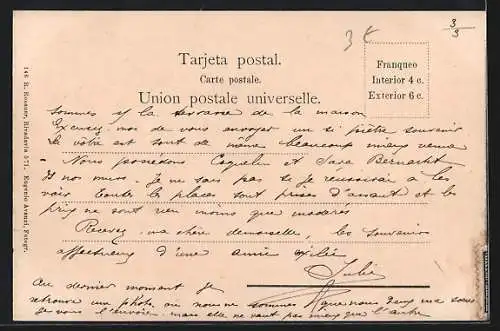 3 €
3/3
Tarjeta postal.
Carte postale.
Union postale universelle.
Franqueo
Interior 4 c.
Exterior 6 c.
146 R. Rosauer, Rivadavia 571. Eugenio Avanzi, Fotogr.
sommes sy la terrasse de la maison
Excusez moi de vous envoyer un si piètre souvenir
Le vôtre est sont de même beaucoup mieux venue
Nous possédons Coquelin et Sara Bernacht
Ds nos murs. Je ne sais pas si je réussirai à les
voir toute la places sont prises d'assaut et les
prix ne sont rien moins que modérés
Recevez, ma chère demoiselle, les souvenirs
affectueux d'une amie exilée
Julie
Au dernier moment je
retrouve une photo, où nous ne sommes que nous deux ma soeur
je vous l'envoie mais elle ne vaut pas mieux que l'autre